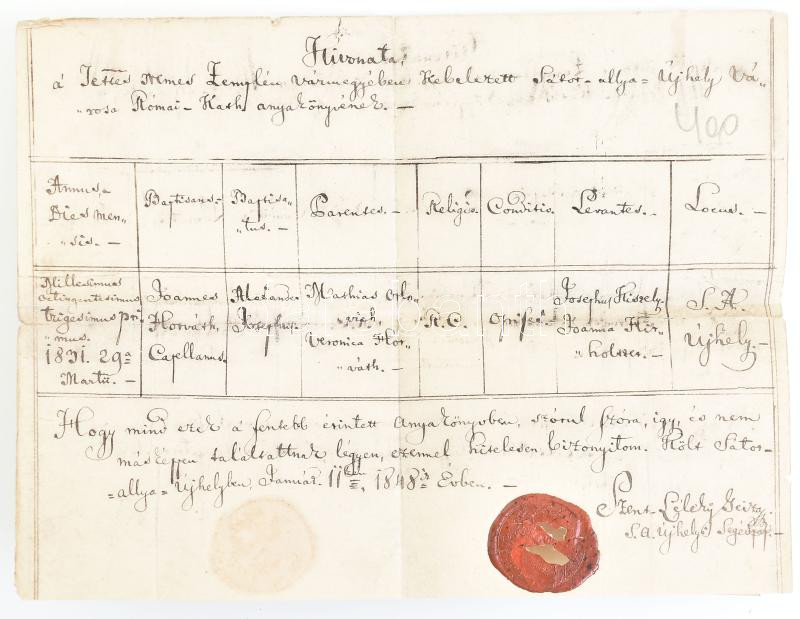 Kivonata,
á Tettes Nemes Zemplén vármegyében kebelezett Sátor-allya=Újhely Vá„
„rosa Római-Kath anyakönyvének. —
400
Annus,
Dies men„
„sis. —
Baptisans. —
Baptisa„
„tus. —
Parentes. —
Religio.
Conditio.
Levantes. —
Locus. —
Millesimus
octingentesimus
trigesimus pri„
„mus.
1831. 29a
Martii. —
Joannes
Horváth,
Capellanus.
Alexander
Josephus.
Mathias Orlo„
„vich,
Veronica Hor„
„váth. —
R. C.
Opifex.
Josephus Kiszely.
Joanna Kir„
„holczer. —
S. A.
Újhely. —
Hogy mind ezek á fentebb érintett anyakönyvben, szórúl szóra, így, és nem
másképpen találtattnak légyen, ezennel hitelesen bizonyítom. Költ Sátor=
=allya=Újhelyben, Január. 11kén, 1848ik Évben. —
Szent-Léleky Geiza
S. A. Újhelyi Segéd